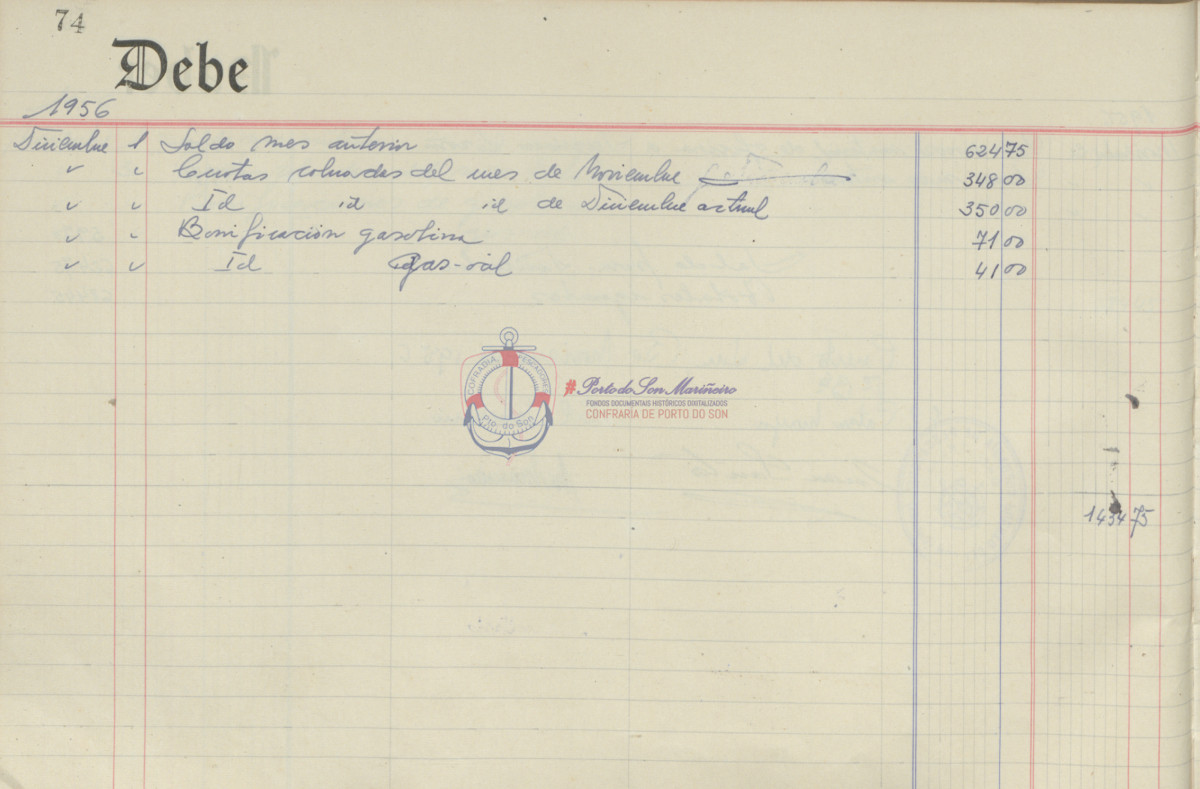 74
Debe
1956
Diciembre 1 Saldo mes anterior 624 75
" " Cuotas cobradas del mes de Noviembre 348 00
" " Id id id de Diciembre actual 350 00
" " Bonificación gasolina 71 00
" " Id gas-oil 41 00
COFRADIA PESCADORES
Pto. do Son
#Porto do Son Mariñeiro
FONDOS DOCUMENTAIS HISTÓRICOS DIXITALIZADOS
CONFRARIA DE PORTO DO SON
1434 75